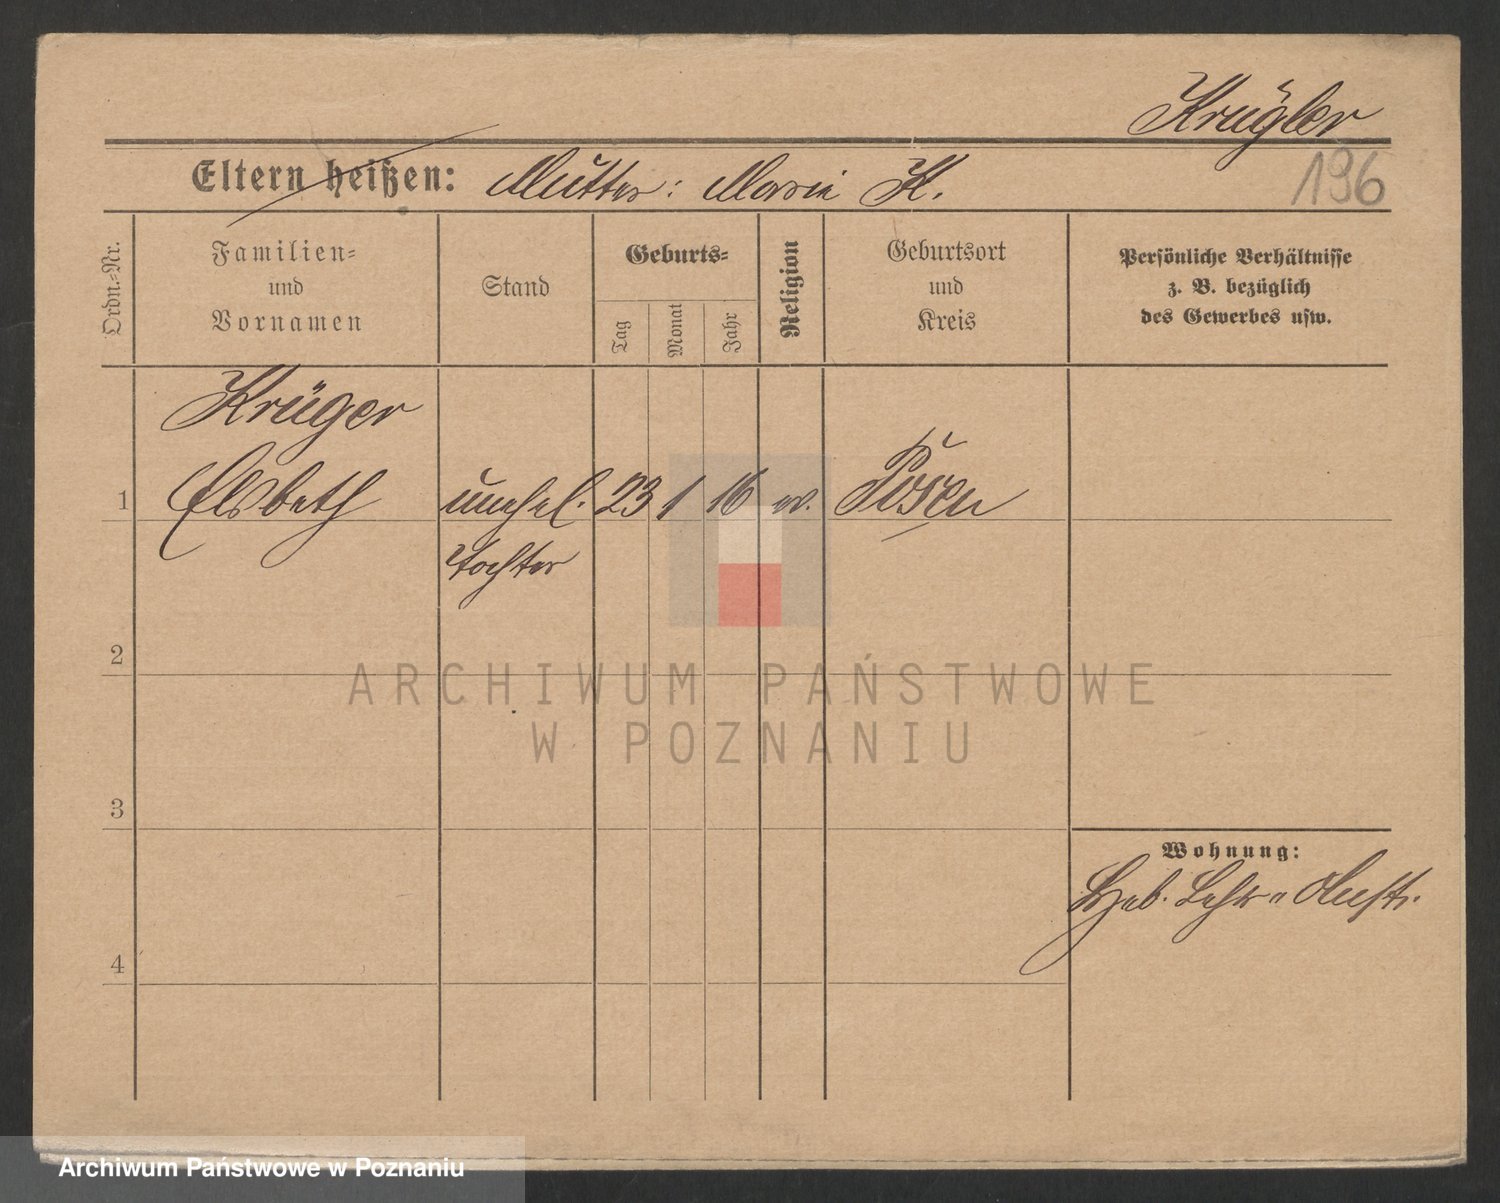 Krügler
Eltern heißen: Mutter: Marie K.
196
Ordn.=Nr.
Familien=
und
Vornamen
Stand
Geburts=
Tag
Monat
Jahr
Religion
Geburtsort
und
Kreis
Persönliche Verhältnisse
z. B. bezüglich
des Gewerbes usw.
Krüger
1 Elsbeth unehel. 23 1 16 ev. Posen
Tochter
2
3
4
Wohnung:
Heb. Lehr= Anst.
ARCHIWUM PAŃSTWOWE
W POZNANIU
Archiwum Państwowe w Poznaniu